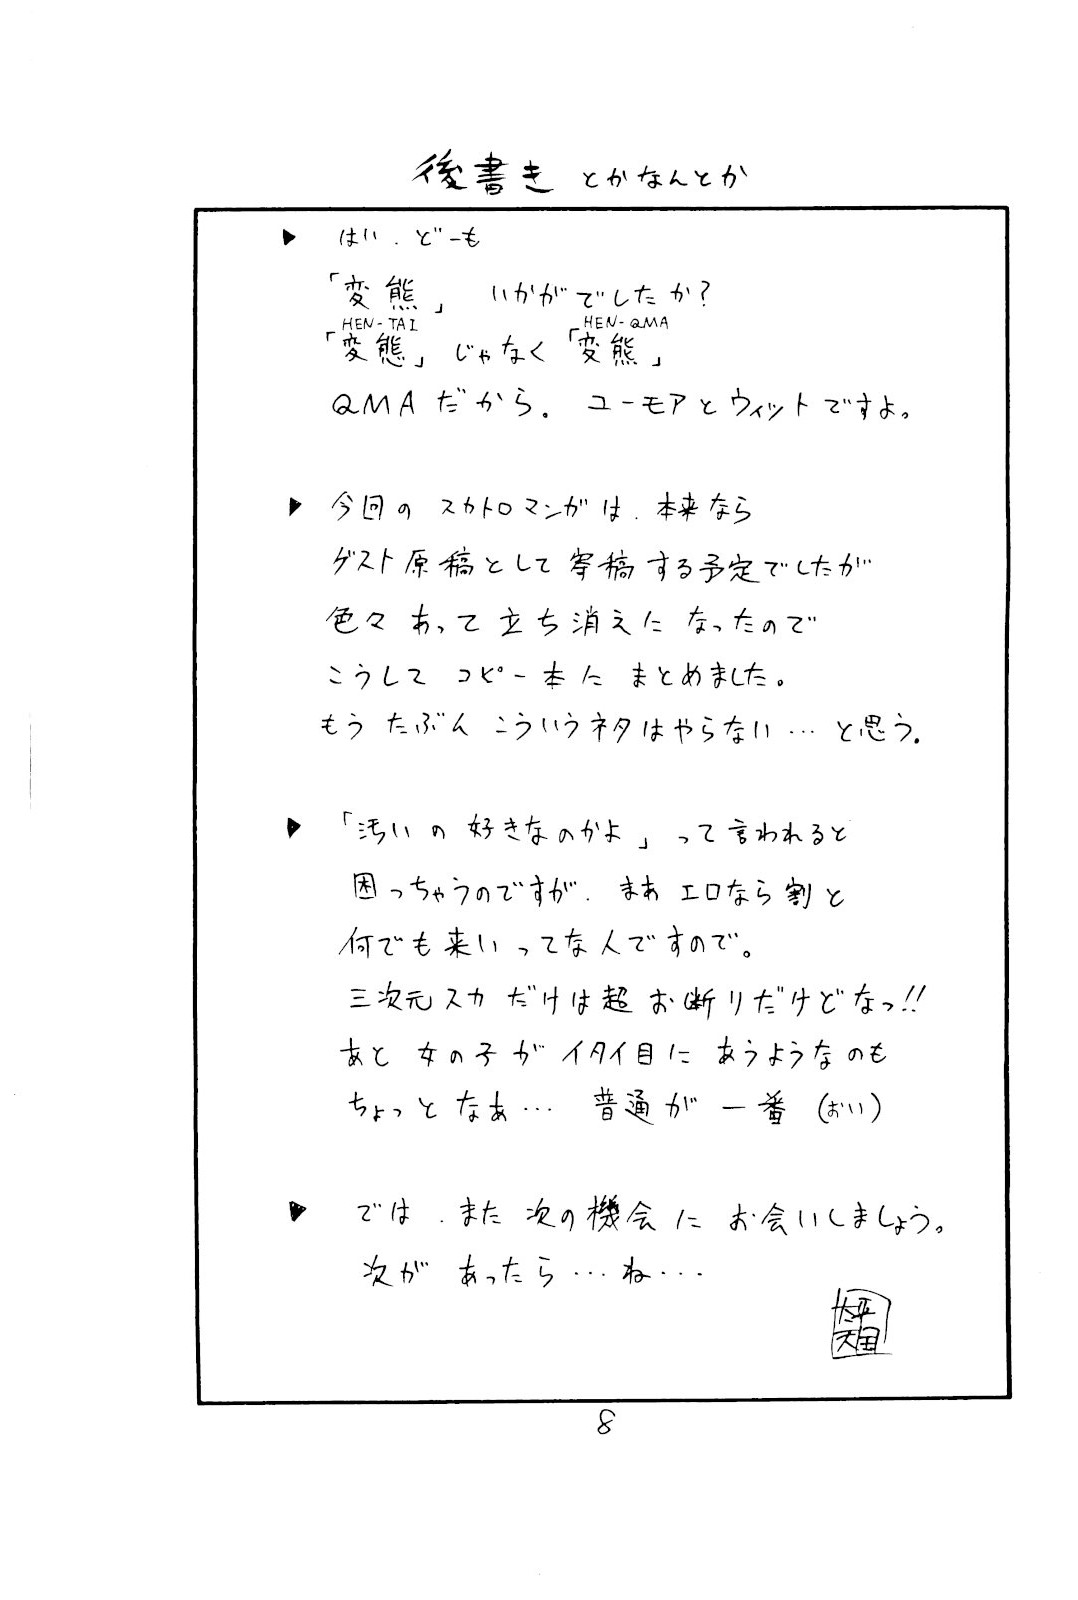 後書き とかなんとか
▶ はい、どーも
「変熊」 いかがでしたか?
HEN-TAI HEN-QMA
「変態」じゃなく「変熊」
QMAだから。 ユーモアとウィットですよ。
▶ 今回の スカトロマンガは、本来なら
ゲスト原稿として寄稿する予定でしたが
色々あって立ち消えになったので
こうしてコピー本に まとめました。
もう たぶん こういうネタはやらない… と思う。
▶ 「汚いの好きなのかよ」って言われると
困っちゃうのですが、まあ エロなら割と
何でも来いってな人ですので。
三次元スカだけは超お断りだけどなっ!!
あと 女の子が イタイ目に あうようなのも
ちょっとなあ… 普通が一番(おい)
▶ では、また次の機会に お会いしましょう。
次が あったら…ね…
太平
天国
8